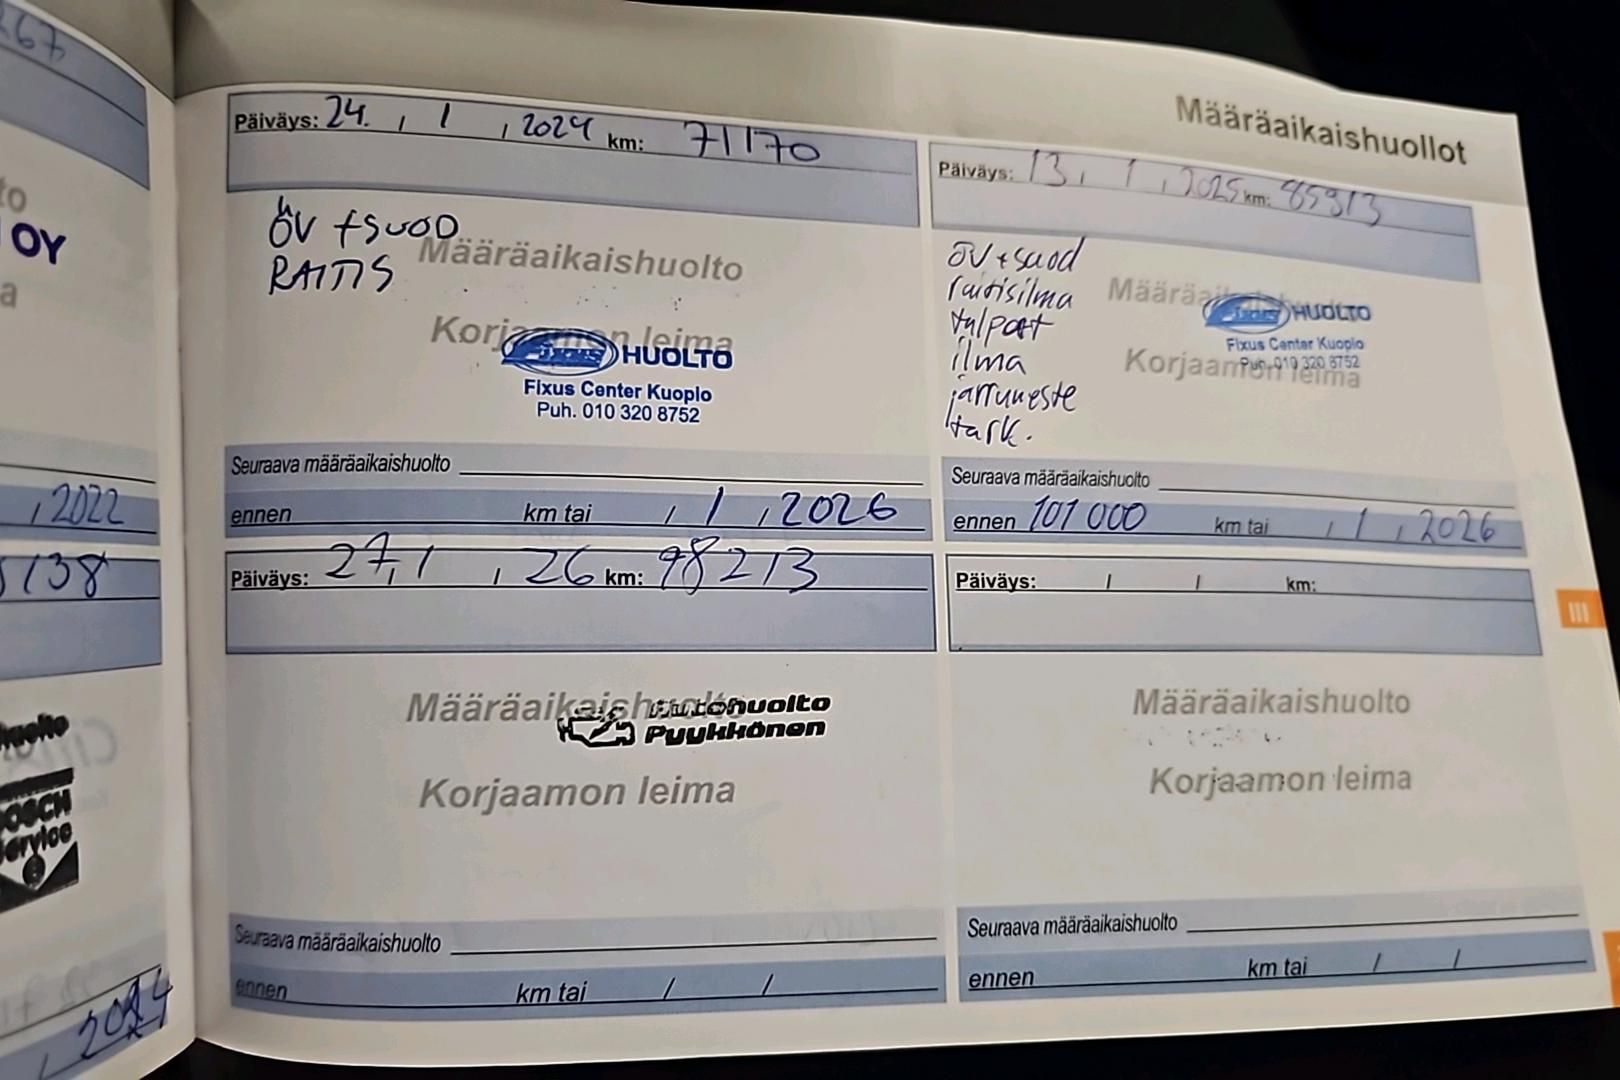 267
to
OY
a
, 2022
5138
huolto
BOSCH
Service
, 2024
Määräaikaishuollot
Päiväys: 24. , 1 , 2024 km: 71170
ÖV + SUOD
RAITIS
Määräaikaishuolto
Korjaamon leima
HUOLTO
Fixus Center Kuopio
Puh. 010 320 8752
Seuraava määräaikaishuolto
ennen km tai / 1 , 2026
Päiväys: 13. , 1 , 2025 km: 85913
ÖV + suod
raitisilma
tulpat
ilma
jarruneste
tark.
Määräaikaishuolto
Korjaamon leima
HUOLTO
Fixus Center Kuopio
Puh. 010 320 8752
Seuraava määräaikaishuolto
ennen 101 000 km tai / 1 , 2026
Päiväys: 27,1 , 26 km: 98213
Määräaikaishuolto
Autohuolto
Pyykkönen
Korjaamon leima
Seuraava määräaikaishuolto
ennen km tai / /
Päiväys: / / km:
III
Määräaikaishuolto
Korjaamon leima
Seuraava määräaikaishuolto
ennen km tai / /